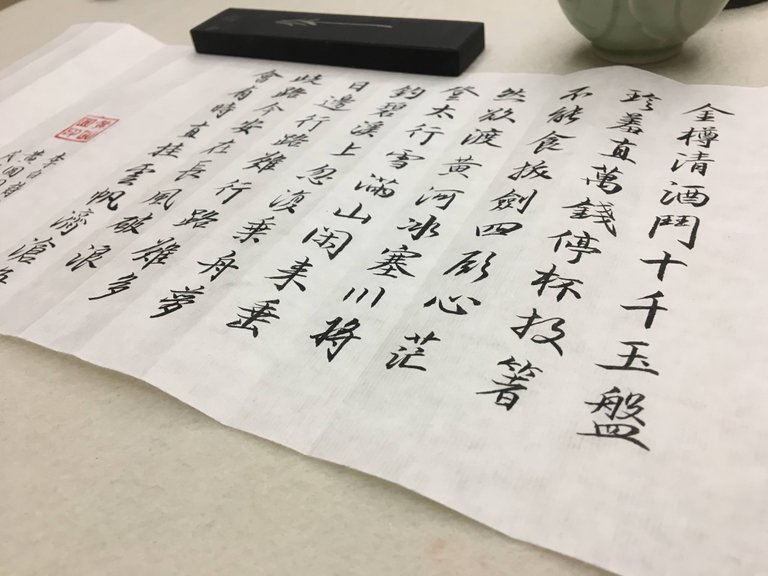 金樽清酒鬥十千玉盤
珍羞直萬錢停杯投箸
不能食拔劍四顧心茫
然欲渡黃河冰塞川將
登太行雪滿山闲来垂
釣碧溪上忽復乘舟夢
日邊行路難行路難多
歧路今安在長風破浪
會有時直挂雲帆濟滄
李白詩